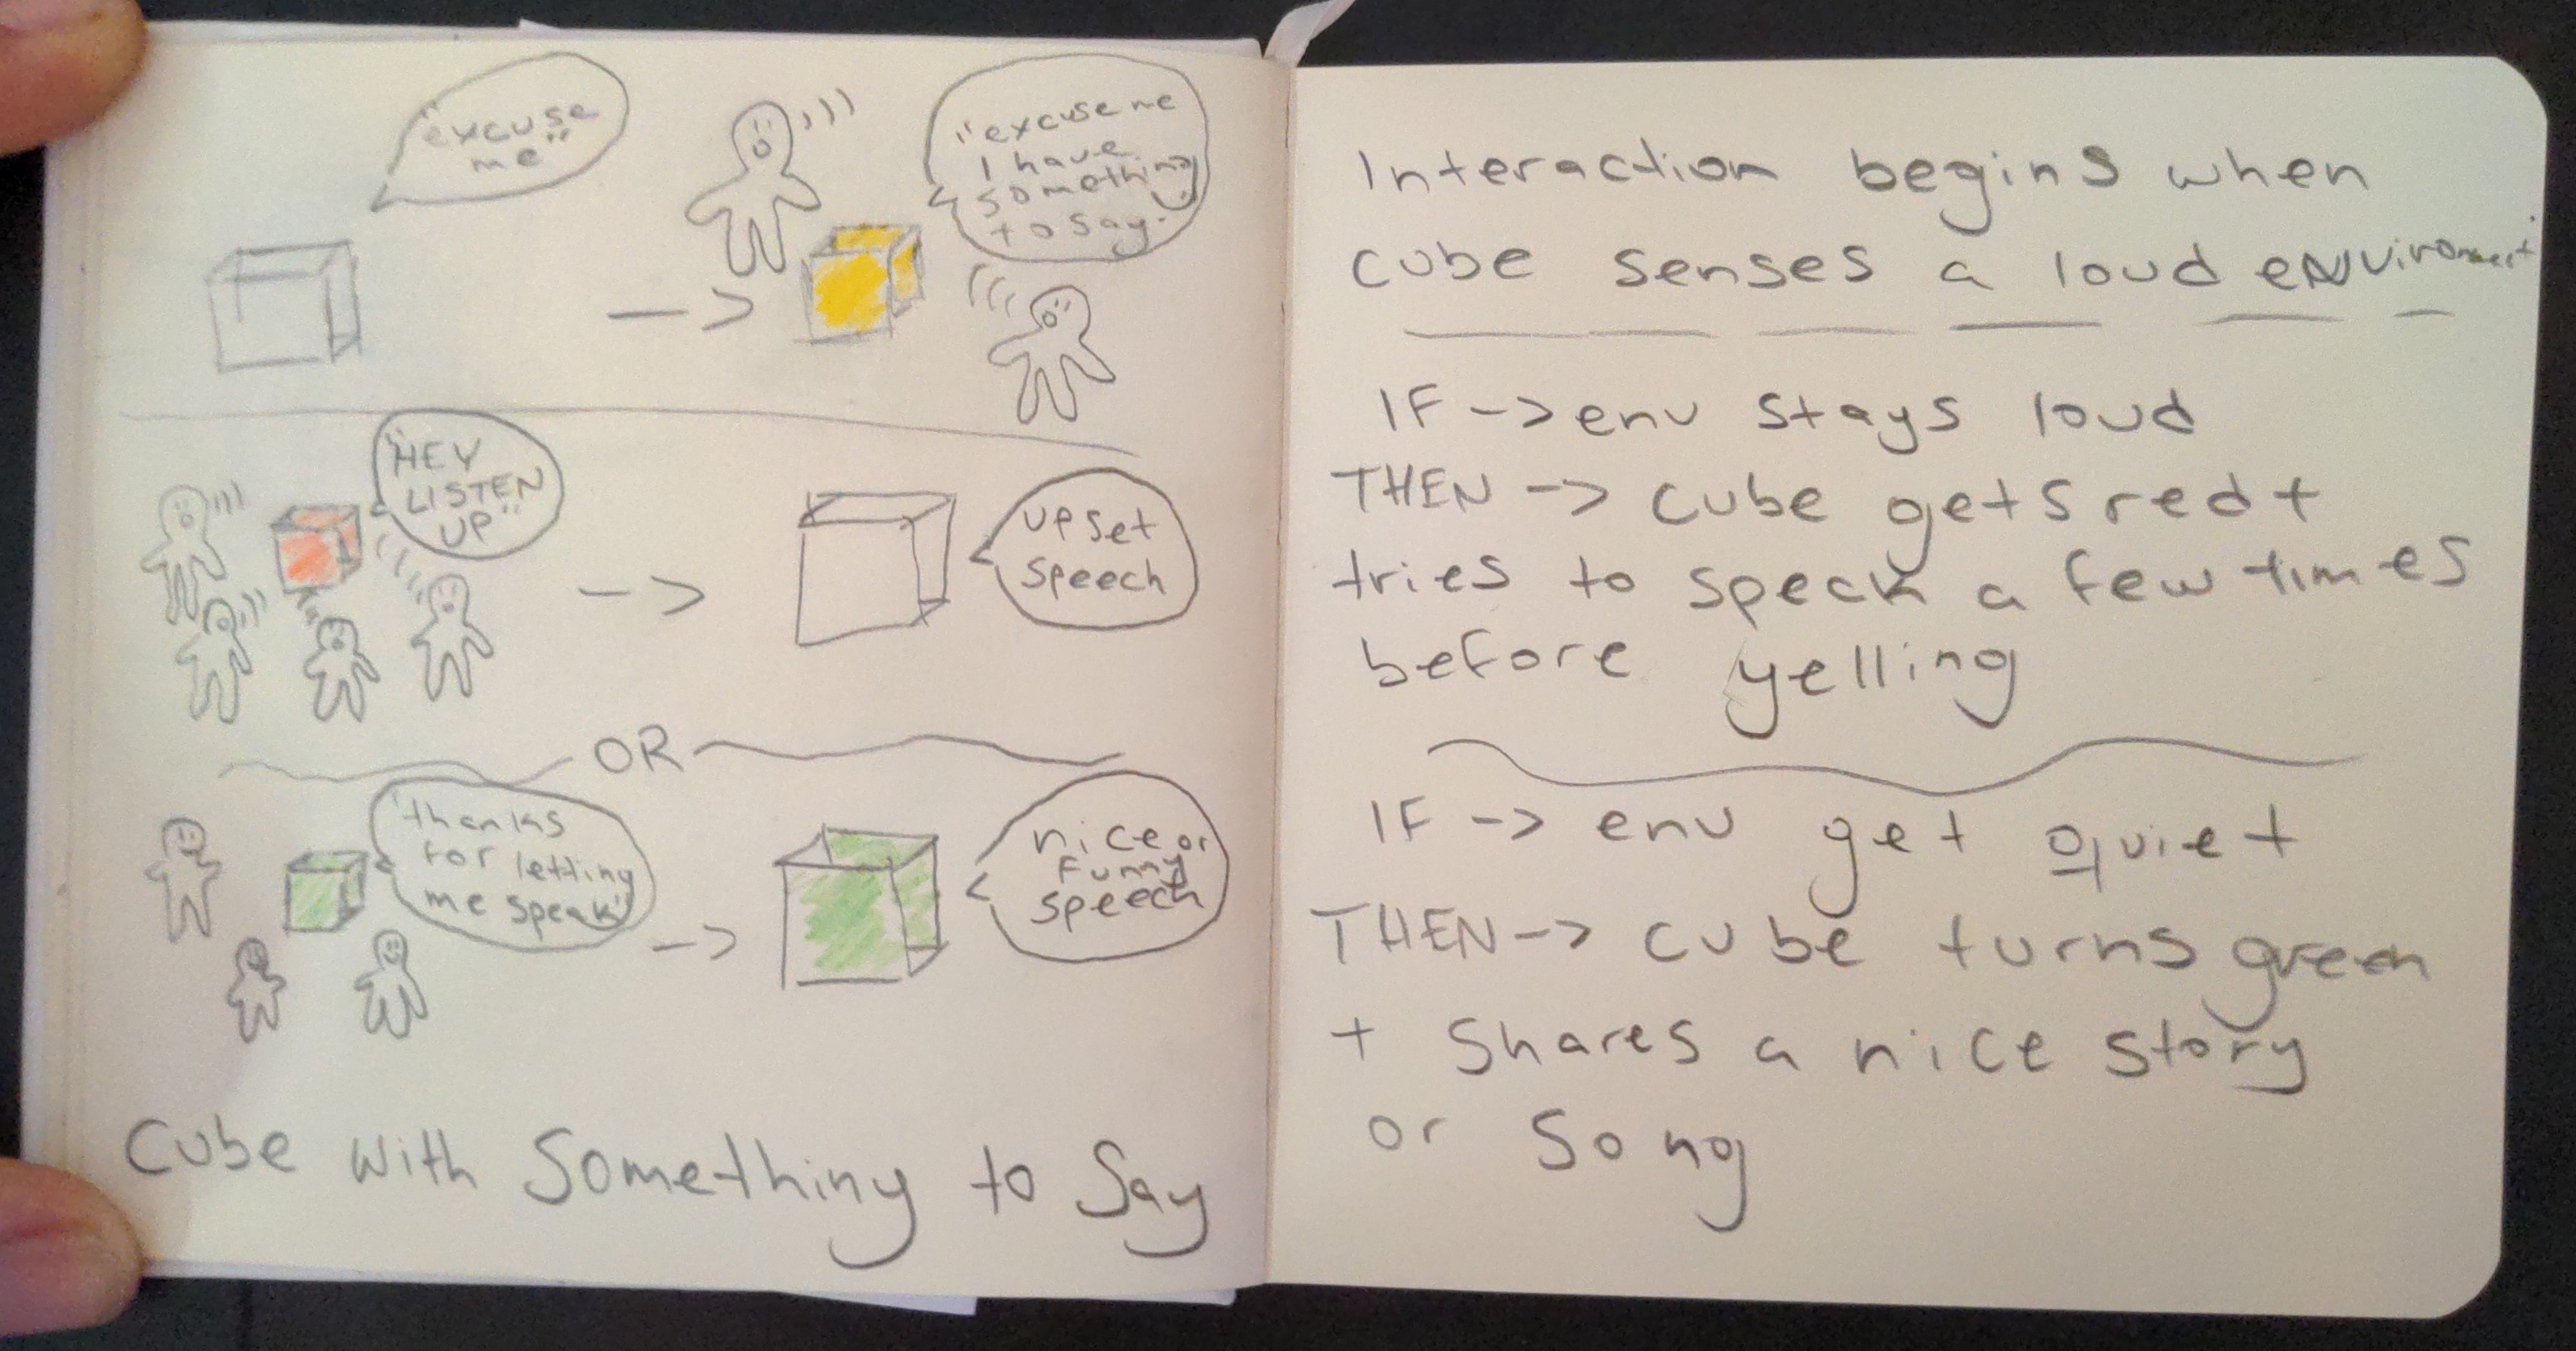 "excuse
me"
"excuse me
I have
something
to say."
"HEY
LISTEN
UP"
upset
speech
OR
"thanks
for letting
me speak"
nice or
funny
speech
Cube with Something to Say
Interaction begins when
cube senses a loud environment
IF -> env stays loud
THEN -> cube gets red +
tries to speak a few times
before yelling
IF -> env get quiet
THEN -> cube turns green
+ shares a nice story
or song